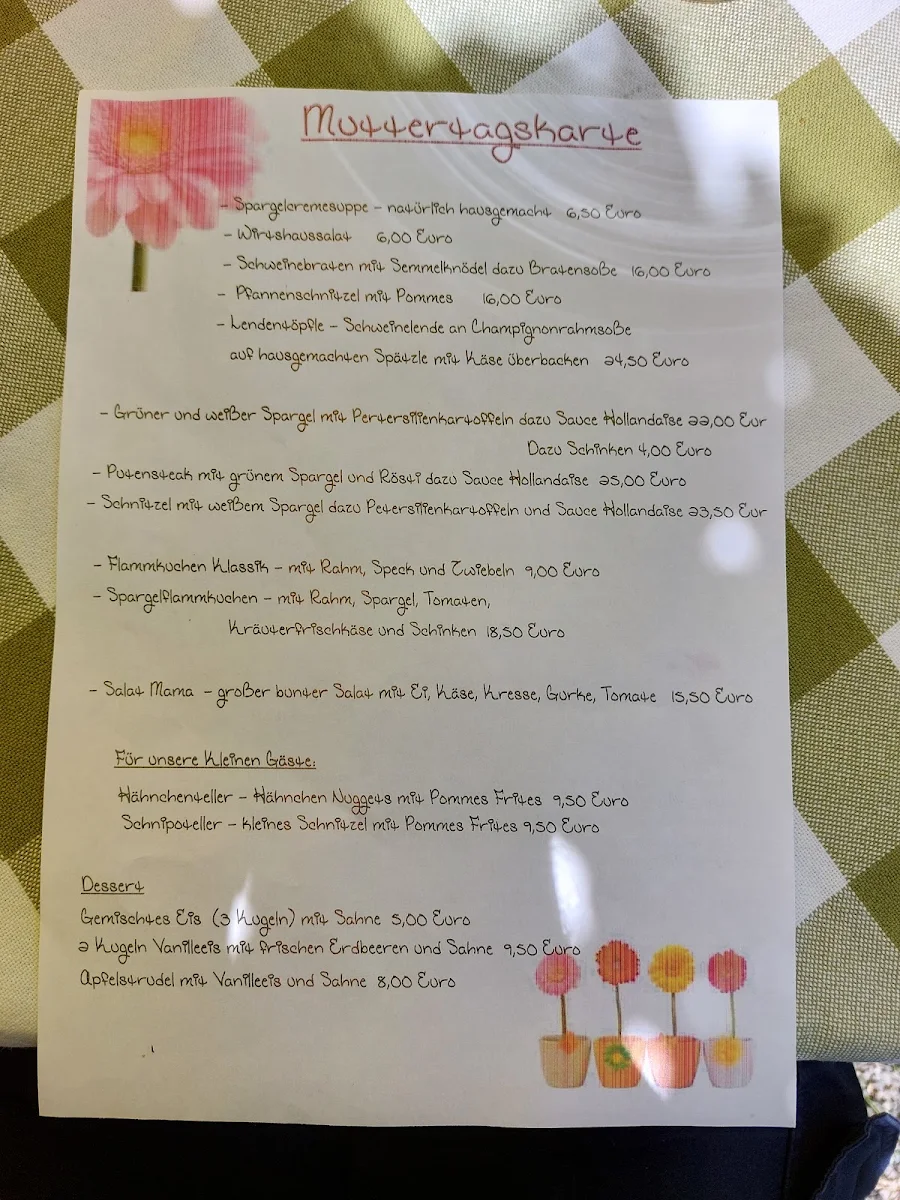 Muttertagskarte
- Spargelcremesuppe - natürlich hausgemacht 6,50 Euro
- Wirtshaussalat 6,00 Euro
- Schweinebraten mit Semmelknödel dazu Bratensoße 16,00 Euro
- Pfannenschnitzel mit Pommes 16,00 Euro
- Lendentöpfle - Schweinelende an Champignonrahmsoße
auf hausgemachten Spätzle mit Käse überbacken 24,50 Euro
- Grüner und weißer Spargel mit Pertersilienkartoffeln dazu Sauce Hollandaise 22,00 Eur
Dazu Schinken 4,00 Euro
- Putensteak mit grünem Spargel und Rösti dazu Sauce Hollandaise 25,00 Euro
- Schnitzel mit weißem Spargel dazu Petersilienkartoffeln und Sauce Hollandaise 23,50 Eur
- Flammkuchen Klassik - mit Rahm, Speck und Zwiebeln 9,00 Euro
- Spargelflammkuchen - mit Rahm, Spargel, Tomaten,
Kräuterfrischkäse und Schinken 18,50 Euro
- Salat Mama - großer bunter Salat mit Ei, Käse, Kresse, Gurke, Tomate 15,50 Euro
Für unsere Kleinen Gäste:
Hähnchenteller - Hähnchen Nuggets mit Pommes Frites 9,50 Euro
Schnipoteller - kleines Schnitzel mit Pommes Frites 9,50 Euro
Dessert
Gemischtes Eis (3 Kugeln) mit Sahne 5,00 Euro
2 Kugeln Vanilleeis mit frischen Erdbeeren und Sahne 9,50 Euro
Apfelstrudel mit Vanilleeis und Sahne 8,00 Euro